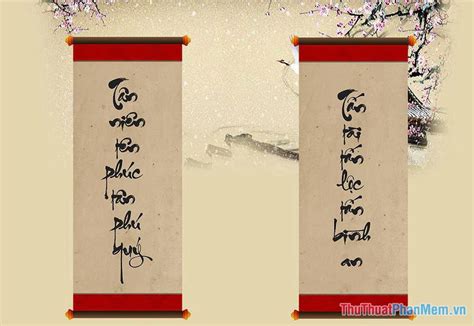 Tân
niên
tân
phúc
tân
phú
quý
Tấn
tài
tấn
lộc
tấn
bình
an
ThuThuatPhanMem.vn